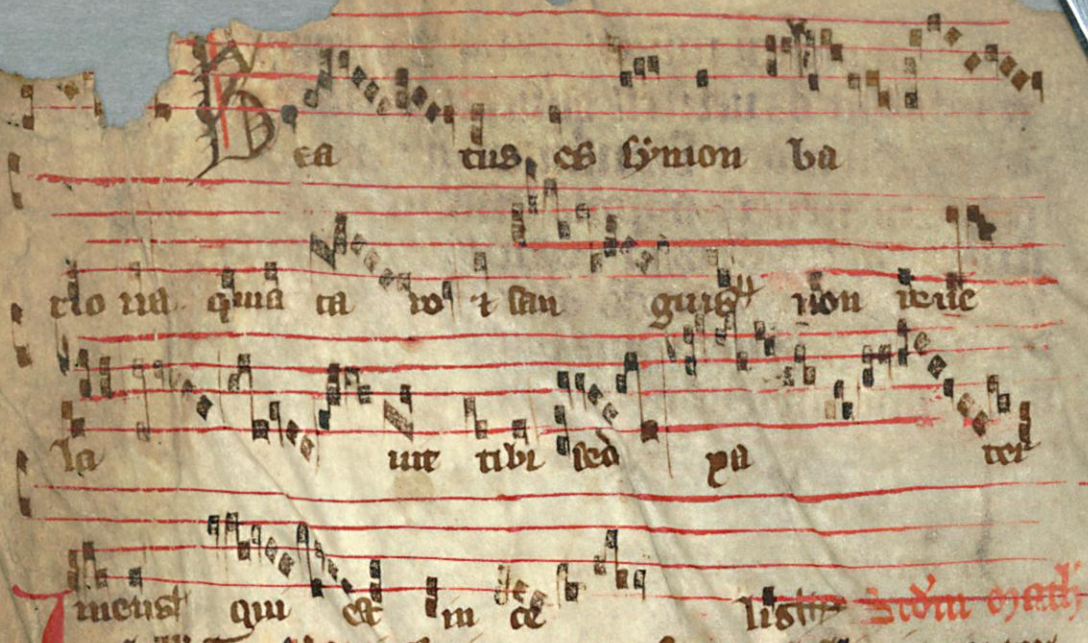 Bea tus es symon ba
rio na quia ca ro & san guis non reue
la uit tibi sed pa ter
meus qui est in ce lis